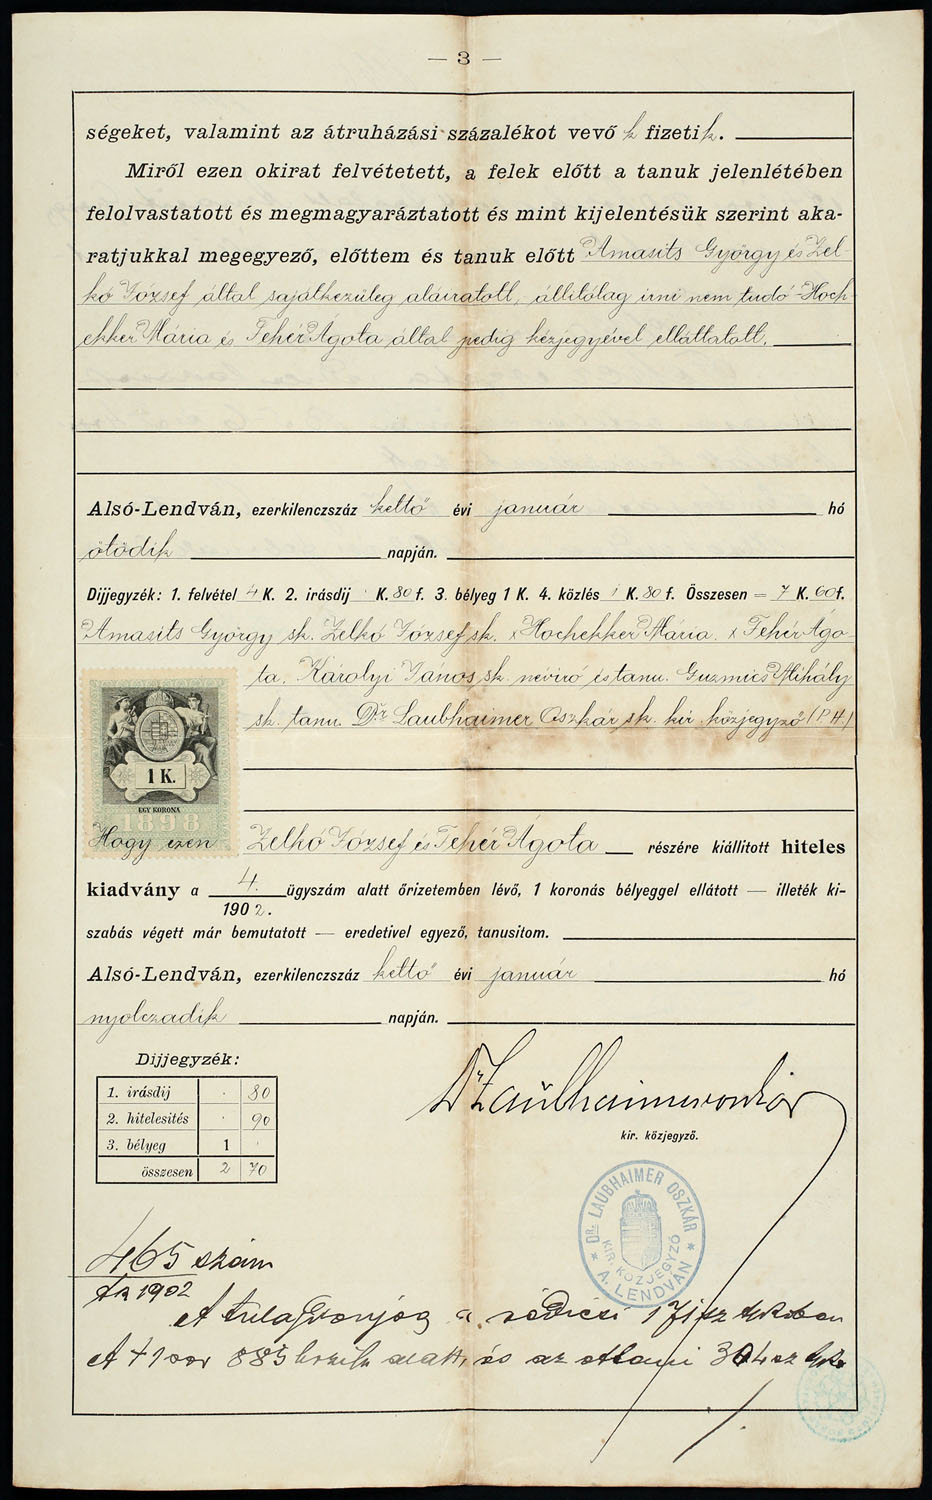 — 3 —
ségeket, valamint az átruházási százalékot vevő k fizetik.
Miről ezen okirat felvétetett, a felek előtt a tanuk jelenlétében
felolvastatott és megmagyaráztatott és mint kijelentésük szerint aka-
ratjukkal megegyező, előttem és tanuk előtt Amasits György és Zel-
kó József által sajátkezüleg aláiratott, állitólag irni nem tudó Hoch-
ekker Mária és Fehér Ágota által pedig kézjegyével elláttatott.
Alsó-Lendván, ezerkilenczszáz kettő évi január hó
ötödik napján.
Dijjegyzék: 1. felvétel 4 K. 2. irásdij · K. 80 f. 3. bélyeg 1 K. 4. közlés 1 K. 80 f. Összesen = 7 K. 60 f.
Amasits György sk. Zelkó József sk. x Hochekker Mária. x Fehér Ágo-
ta. Károlyi János sk. néviró és tanu. Guzmics Mihály
sk. tanu. Dr. Laubhaimer Oszkár sk. kir. közjegyző (P.H.)
1 K.
EGY KORONA
1898
Hogy ezen Zelkó József és Fehér Ágota részére kiállitott hiteles
kiadvány a 4. / 1902. ügyszám alatt őrizetemben lévő, 1 koronás bélyeggel ellátott — illeték ki-
szabás végett már bemutatott — eredetivel egyező, tanusitom.
Alsó-Lendván, ezerkilenczszáz kettő évi január hó
nyolczadik napján.
Dijjegyzék:
1. irásdij · 80
2. hitelesités · 90
3. bélyeg 1 ·
összesen 2 70
Dr Laubhaimer Oszkár
kir. közjegyző.
DR. LAUBHAIMER OSZKÁR
KIR. KÖZJEGYZŐ
* A. LENDVÁN *
465 szám
tk 1902
A tulajdonjog a 17 sz
A + 1 sor 885 alatt, és az 304 sz